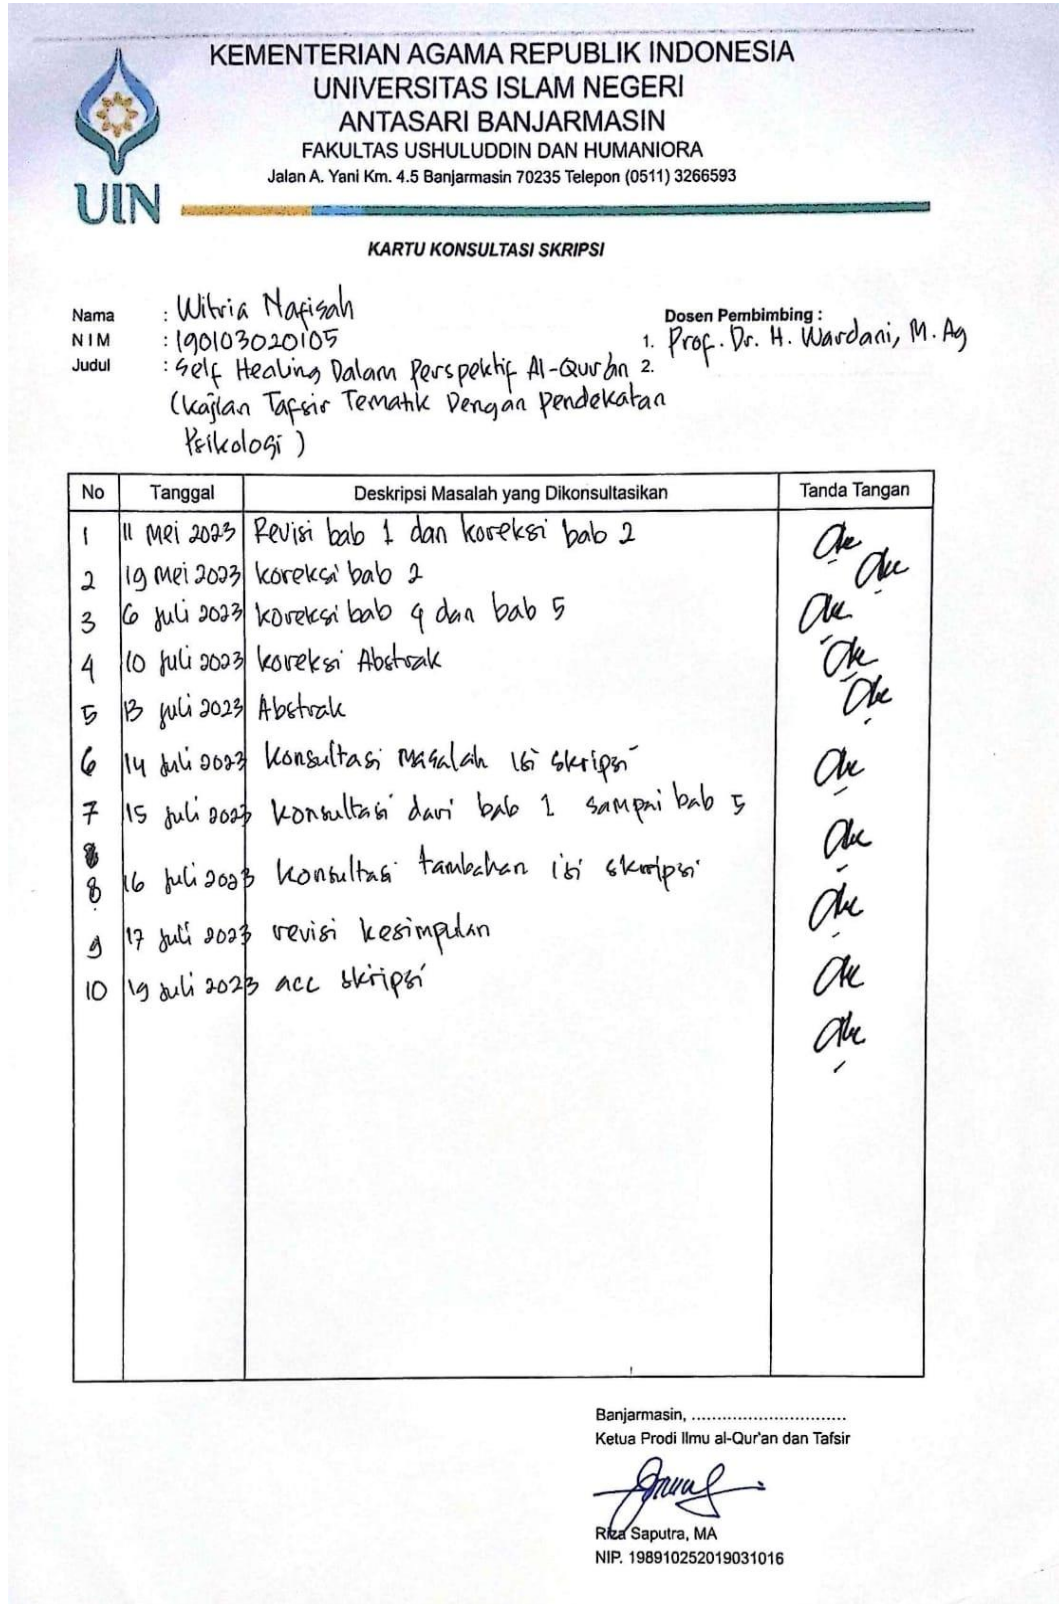 KEMENTERIAN AGAMA REPUBLIK INDONESIA
UNIVERSITAS ISLAM NEGERI
ANTASARI BANJARMASIN
FAKULTAS USHULUDDIN DAN HUMANIORA
Jalan A. Yani Km. 4.5 Banjarmasin 70235 Telepon (0511) 3266593
UIN
KARTU KONSULTASI SKRIPSI
Nama : Witria Nafisah
NIM : 190103020105
Judul : Self Healing Dalam Perspektif Al-Qur'an
(Kajian Tafsir Tematik Dengan Pendekatan
Psikologi)
Dosen Pembimbing :
1. Prof. Dr. H. Wardani, M. Ag
2.
No Tanggal Deskripsi Masalah yang Dikonsultasikan Tanda Tangan
1 11 Mei 2023 Revisi bab 1 dan koreksi bab 2
2 19 Mei 2023 koreksi bab 2
3 6 Juli 2023 koreksi bab 4 dan bab 5
4 10 Juli 2023 koreksi Abstrak
5 13 Juli 2023 Abstrak
6 14 Juli 2023 konsultasi masalah isi skripsi
7 15 Juli 2023 konsultasi dari bab 1 sampai bab 5
8 16 Juli 2023 konsultasi tambahan isi skripsi
9 17 Juli 2023 revisi kesimpulan
10 19 Juli 2023 acc skripsi
Banjarmasin, ..............................
Ketua Prodi Ilmu al-Qur'an dan Tafsir
Riza Saputra, MA
NIP. 198910252019031016